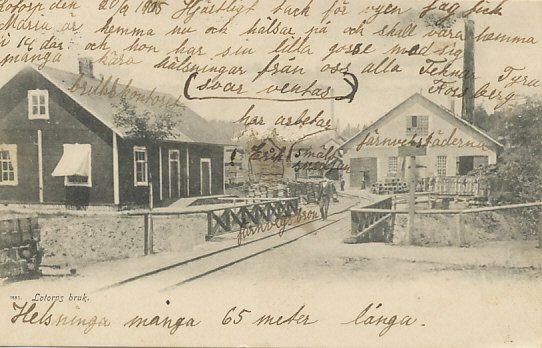 Lotorp den 20/9 1905 Hjärtligt tack för vyen jag fick
Maria är hemma nu och hälsar på och skall vara hemma
i 14 dar och hon har sin lilla gosse med sig
många kära hälsningar från oss alla Teknar Tyra
Forsberg
(svar ventas)
brukskontoret
har arbetar
Erik i
järnvetstäderna
järnvegsbron
1881. Lotorps bruk.
Helsninga många 65 meter långa.